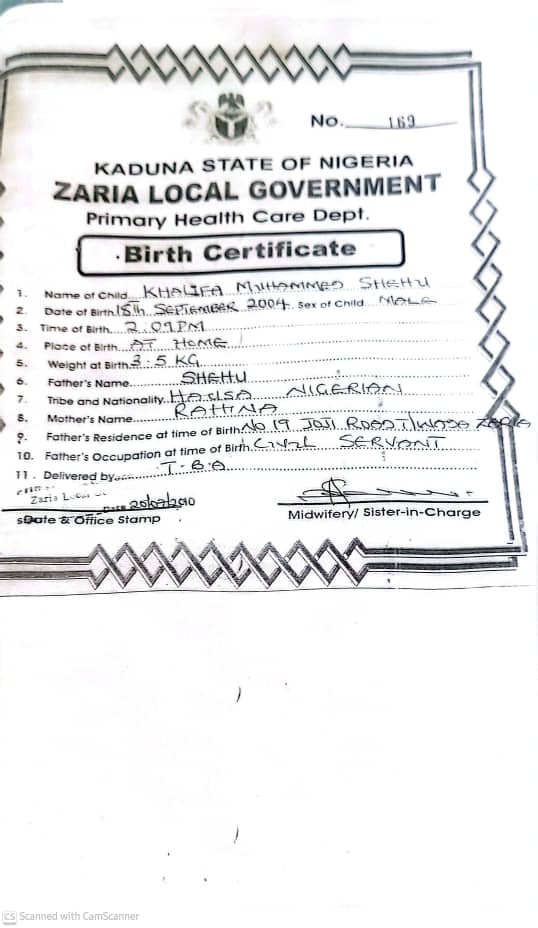 No. 169
KADUNA STATE OF NIGERIA
ZARIA LOCAL GOVERNMENT
Primary Health Care Dept.
Birth Certificate
1. Name of Child KHALIFA MUHAMMED SHEHU
2. Date of Birth 15th SEPTEMBER 2004. Sex of Child MALE
3. Time of Birth 2.09PM
4. Place of Birth AT HOME
5. Weight at Birth 3.5 KG
6. Father's Name SHEHU
7. Tribe and Nationality HAUSA NIGERIAN
8. Mother's Name
9. Father's Residence at time of Birth No 19 JOJI ROAD T/WADA ZARIA
10. Father's Occupation at time of Birth CIVIL SERVANT
11. Delivered by T.B.A
Zaria
Date & Office Stamp
Midwifery/ Sister-in-Charge
CS Scanned with CamScanner